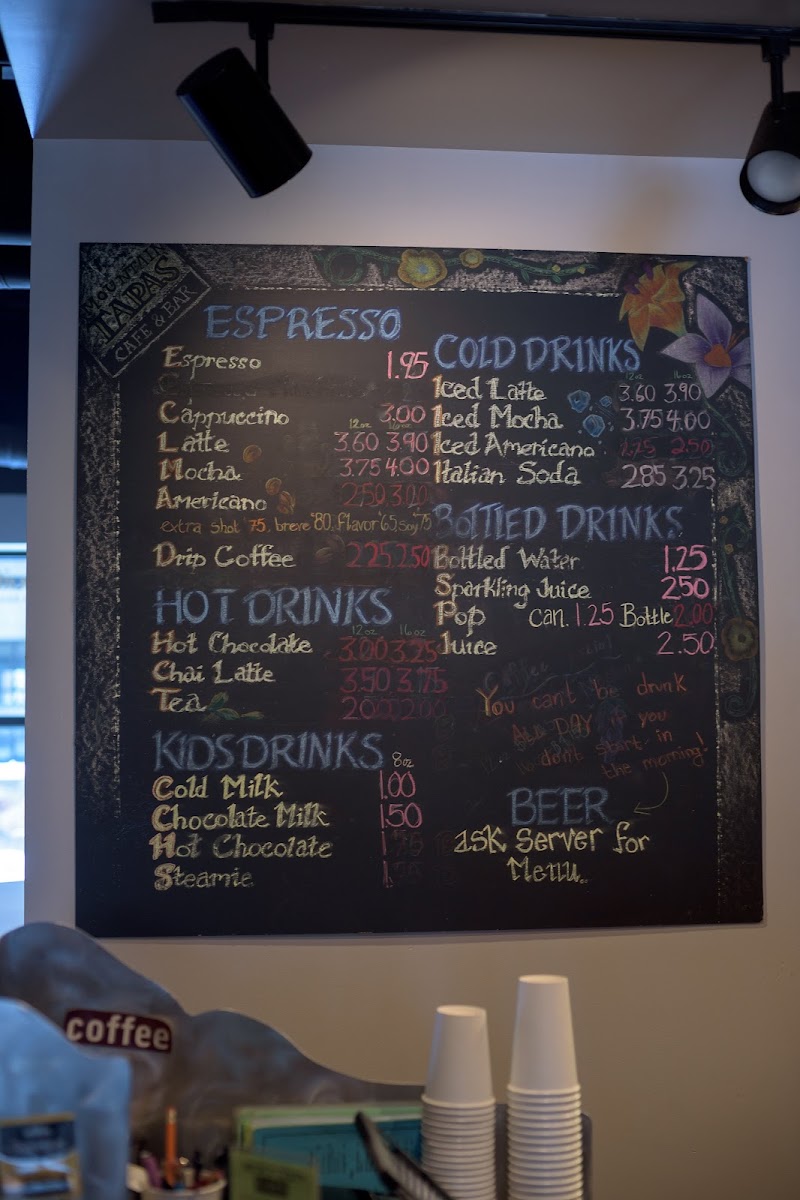 MOUNTAIN
TAPAS
CAFE & BAR
ESPRESSO
Espresso 1.95
Cappuccino 3.00
12oz 16oz
Latte 3.60 3.90
Mocha 3.75 4.00
Americano 2.50 3.00
extra shot .75, breve .80, flavor .65, soy .75
Drip Coffee 2.25 2.50
HOT DRINKS
12oz 16oz
Hot Chocolate 3.00 3.25
Chai Latte 3.50 3.75
Tea 2.00 2.00
KIDS DRINKS 8oz
Cold Milk 1.00
Chocolate Milk 1.50
Hot Chocolate 1.75
Steamie 1.75
COLD DRINKS
12oz 16oz
Iced Latte 3.60 3.90
Iced Mocha 3.75 4.00
Iced Americano 2.25 2.50
Italian Soda 2.85 3.25
BOTTLED DRINKS
Bottled Water 1.25
Sparkling Juice 2.50
Pop can 1.25 Bottle 2.00
Juice 2.50
You can't be drunk
ALL DAY if you
don't start in
the morning!
BEER
ask server for
Menu.
coffee